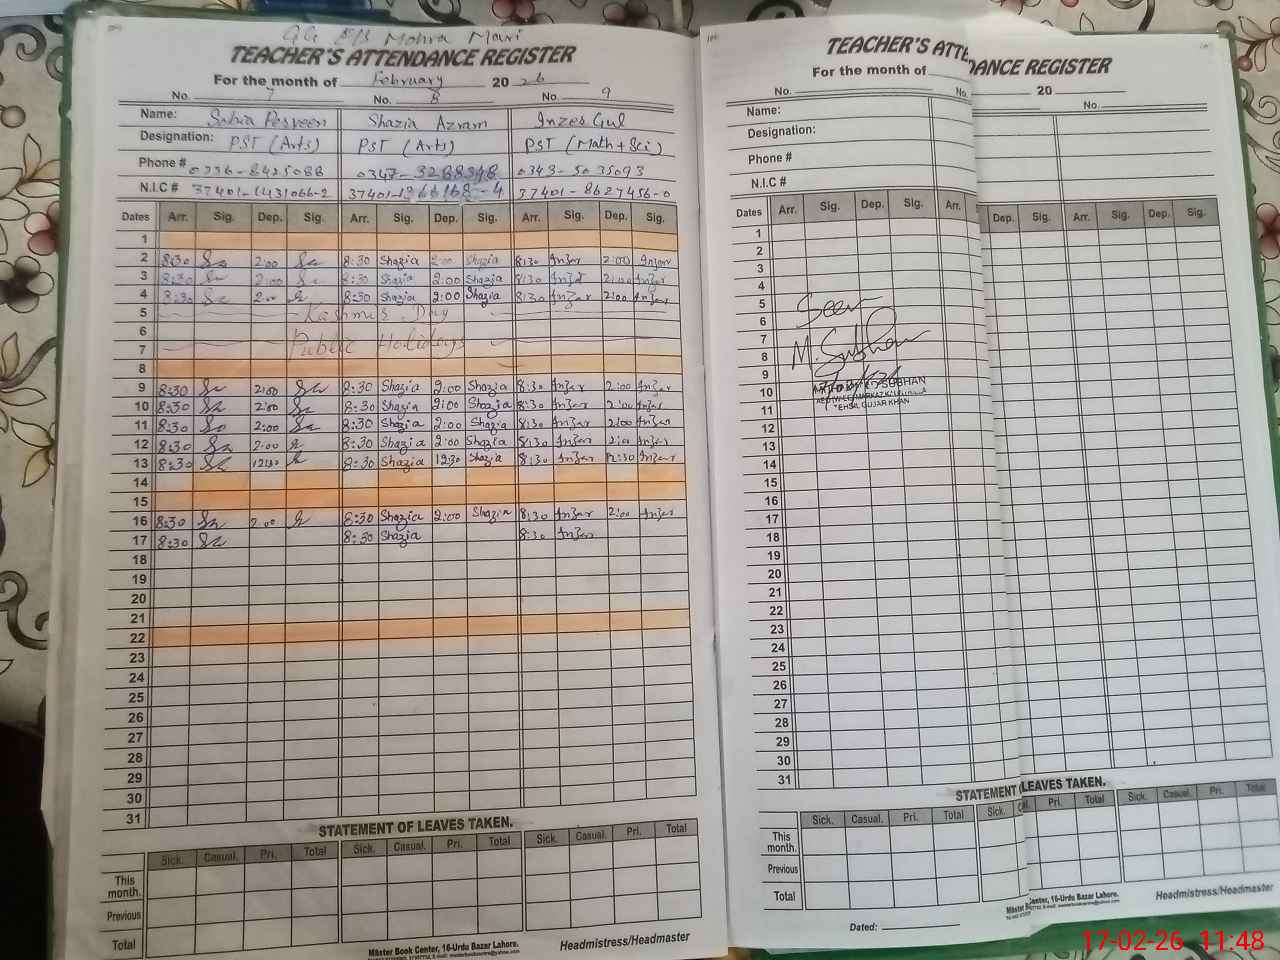 GG E/S Mohra Mari
TEACHER'S ATTENDANCE REGISTER
For the month of February 2026
No. 7 No. 8 No. 9
Name: Sabia Perveen Shazia Azram Inzer Gul
Designation: PST (Arts) PST (Arts) PST (Math + Sci)
Phone # 0336-8425088 0347-3288348 0343-5035093
N.I.C # 37401-1431066-2 37401-1366168-4 37401-8627456-0
Dates Arr. Sig. Dep. Sig. Arr. Sig. Dep. Sig. Arr. Sig. Dep. Sig.
1
2 8:30 2:00 8:30 Shazia 2:00 Shazia 8:30 Inzer 2:00 Inzer
3 8:30 2:00 8:30 Shazia 2:00 Shazia 8:30 Inzer 2:00 Inzer
4 8:30 2:00 8:30 Shazia 2:00 Shazia 8:30 Inzer 2:00 Inzer
5 Kashmir Day
6
7 Public Holidays
8
9 8:30 2:00 8:30 Shazia 2:00 Shazia 8:30 Inzer 2:00 Inzer
10 8:30 2:00 8:30 Shazia 2:00 Shazia 8:30 Inzer 2:00 Inzer
11 8:30 2:00 8:30 Shazia 2:00 Shazia 8:30 Inzer 2:00 Inzer
12 8:30 2:00 8:30 Shazia 2:00 Shazia 8:30 Inzer 2:00 Inzer
13 8:30 12:30 8:30 Shazia 12:30 Shazia 8:30 Inzer 12:30 Inzer
14
15
16 8:30 2:00 8:30 Shazia 2:00 Shazia 8:30 Inzer 2:00 Inzer
17 8:30 8:30 Shazia 8:30 Inzer
18
19
20
21
22
23
24
25
26
27
28
29
30
31
STATEMENT OF LEAVES TAKEN.
Sick. Casual. Pri. Total Sick. Casual. Pri. Total Sick. Casual. Pri. Total
This month.
Previous
Total
Master Book Center, 16-Urdu Bazar Lahore. Headmistress/Headmaster
TEACHER'S ATTE
For the month of
No. No.
Name:
Designation:
Phone #
N.I.C #
Dates Arr. Sig. Dep. Sig. Arr.
1
2
3
4
5 Seen
6
7 M. Subhan
8
9
10 SUBHAN
11 TEHSIL GUJAR KHAN
12
13
14
15
16
17
18
19
20
21
22
23
24
25
26
27
28
29
30
31
STATEMENT
Sick. Casual. Pri. Total Sick.
This month.
Previous
Total
Dated:
Master B
DANCE REGISTER
20
No.
Dep. Sig. Arr. Sig. Dep. Sig.
LEAVES TAKEN.
Pri. Total Sick. Casual. Pri. Total
Center, 16-Urdu Bazar Lahore. Headmistress/Headmaster
17-02-26 11:48